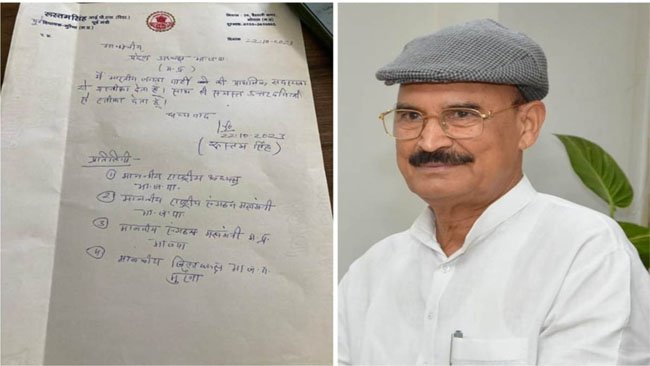 रुस्तमसिंह आई.पी.एस (रिटा.)
पूर्व मंत्री
पूर्व विधायक-मुरैना (म.प्र.)
भोपाल (म.प्र.)
दिनांक 22.10.2023
माननीय
प्रदेश अध्यक्ष भाजपा
(म.प्र.)
में भारतीय जनता पार्टी की प्राथमिक सदस्यता
से इस्तीफा देता हूँ। साथ ही समस्त उत्तरदायित्वों
से इस्तीफा देता हूँ।
धन्यवाद
22.10.2023
(रुस्तम सिंह)
प्रतिलिपी:-
① माननीय राष्ट्रीय अध्यक्ष
भा.ज.पा.
② माननीय राष्ट्रीय संगठन महामंत्री
भा.ज.पा
③ माननीय संगठन महामंत्री म.प्र.
भाजपा
④ माननीय जिलाध्यक्ष भा.ज.पा.
मुरैना